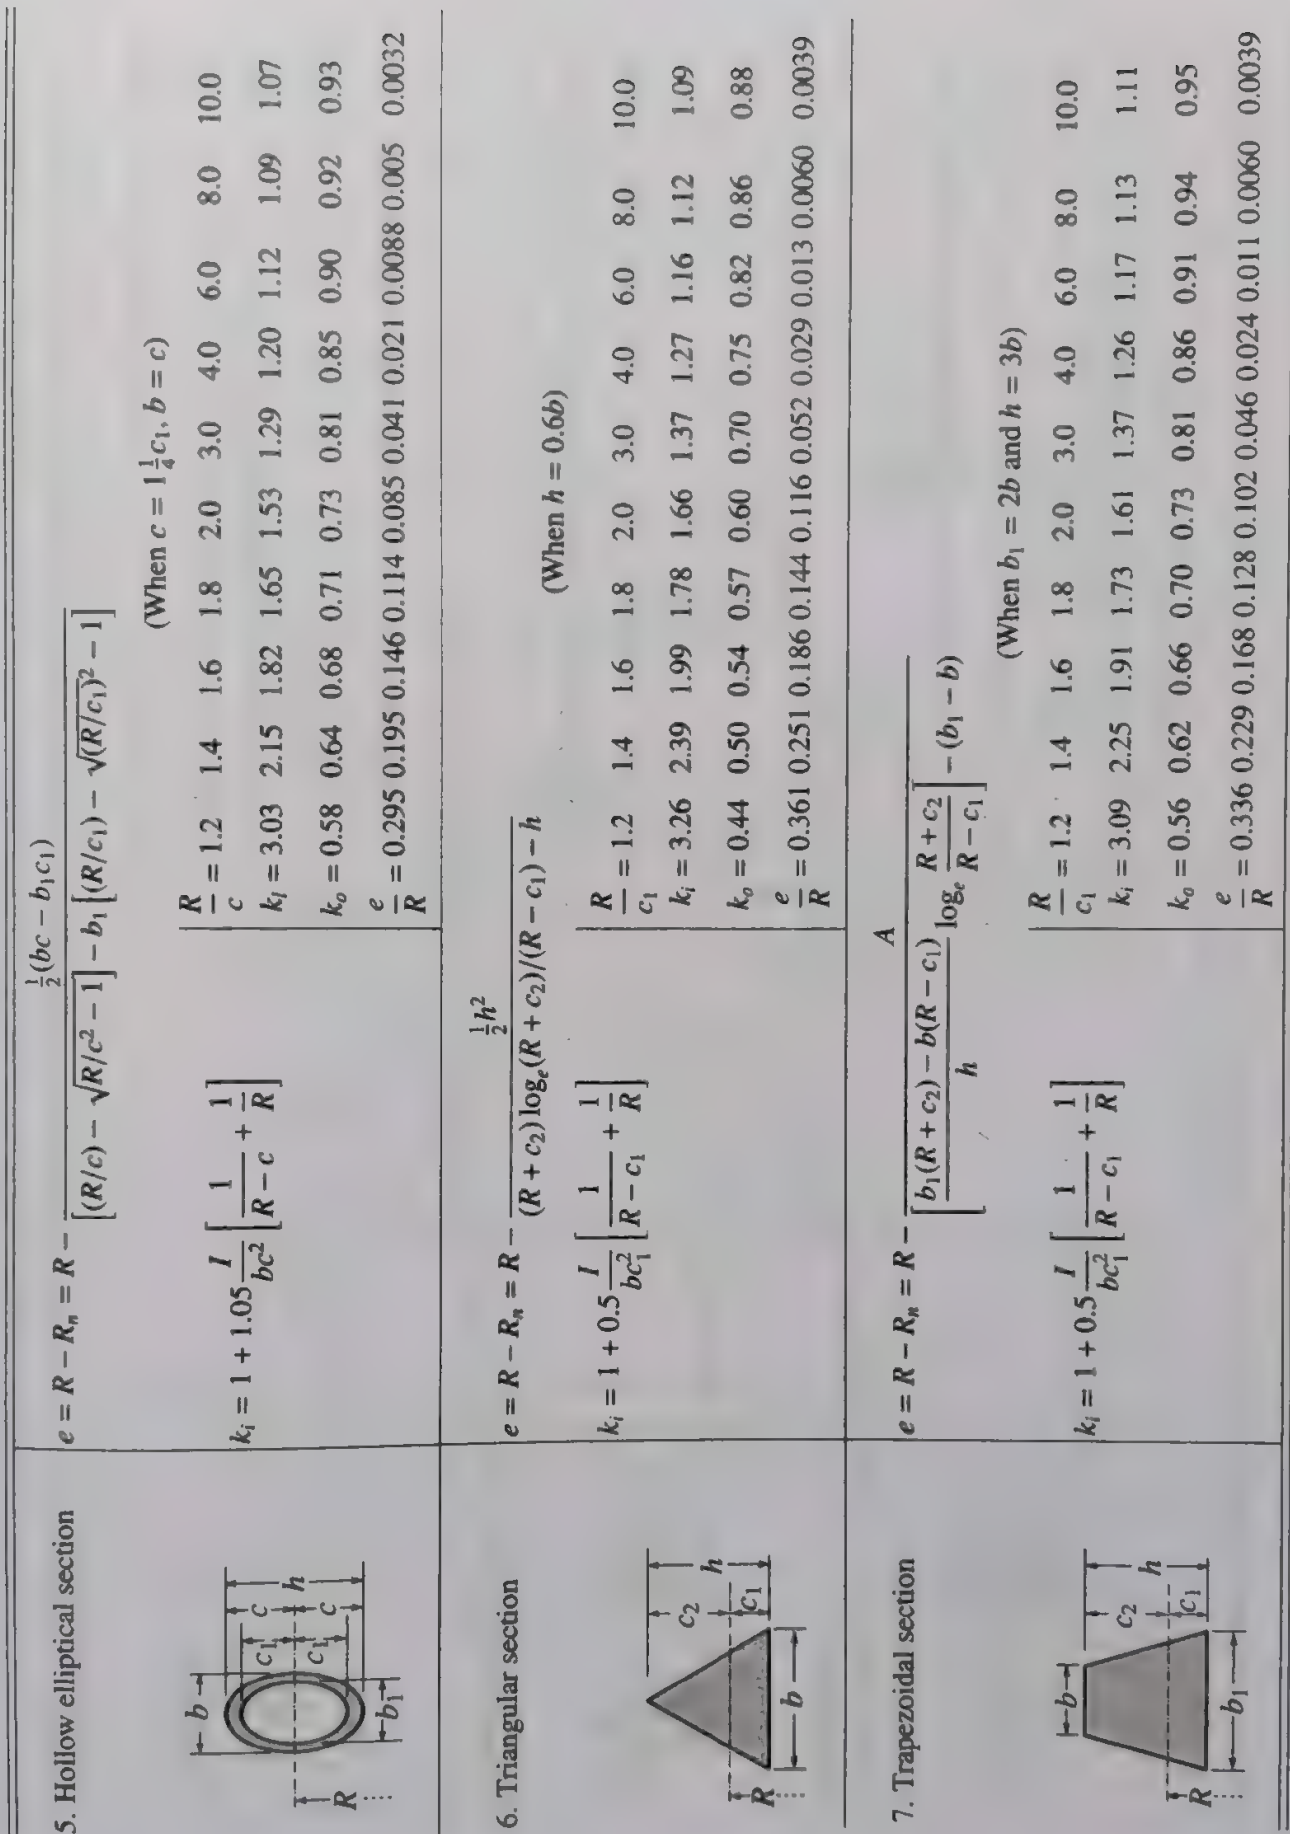 5. Hollow elliptical section
b
c1
c
c1
c
h
b1
R
e = R − Rn = R − ½(bc − b1c1) / [(R/c) − √(R/c² − 1)] − b1[(R/c1) − √((R/c1)² − 1)]
ki = 1 + 1.05 I/bc² [1/(R − c) + 1/R]
(When c = 1¼c1, b = c)
R/c = 1.2 1.4 1.6 1.8 2.0 3.0 4.0 6.0 8.0 10.0
ki = 3.03 2.15 1.82 1.65 1.53 1.29 1.20 1.12 1.09 1.07
ko = 0.58 0.64 0.68 0.71 0.73 0.81 0.85 0.90 0.92 0.93
e/R = 0.295 0.195 0.146 0.114 0.085 0.041 0.021 0.0088 0.005 0.0032
6. Triangular section
c2
c1
h
b
R
e = R − Rn = R − ½h² / (R + c2) loge (R + c2)/(R − c1) − h
ki = 1 + 0.5 I/bc1² [1/(R − c1) + 1/R]
(When h = 0.6b)
R/c1 = 1.2 1.4 1.6 1.8 2.0 3.0 4.0 6.0 8.0 10.0
ki = 3.26 2.39 1.99 1.78 1.66 1.37 1.27 1.16 1.12 1.09
ko = 0.44 0.50 0.54 0.57 0.60 0.70 0.75 0.82 0.86 0.88
e/R = 0.361 0.251 0.186 0.144 0.116 0.052 0.029 0.013 0.0060 0.0039
7. Trapezoidal section
b
c2
c1
h
b1
R
e = R − Rn = R − A / [(b1(R + c2) − b(R − c1))/h loge (R + c2)/(R − c1)] − (b1 − b)
ki = 1 + 0.5 I/bc1² [1/(R − c1) + 1/R]
(When b1 = 2b and h = 3b)
R/c1 = 1.2 1.4 1.6 1.8 2.0 3.0 4.0 6.0 8.0 10.0
ki = 3.09 2.25 1.91 1.73 1.61 1.37 1.26 1.17 1.13 1.11
ko = 0.56 0.62 0.66 0.70 0.73 0.81 0.86 0.91 0.94 0.95
e/R = 0.336 0.229 0.168 0.128 0.102 0.046 0.024 0.011 0.0060 0.0039